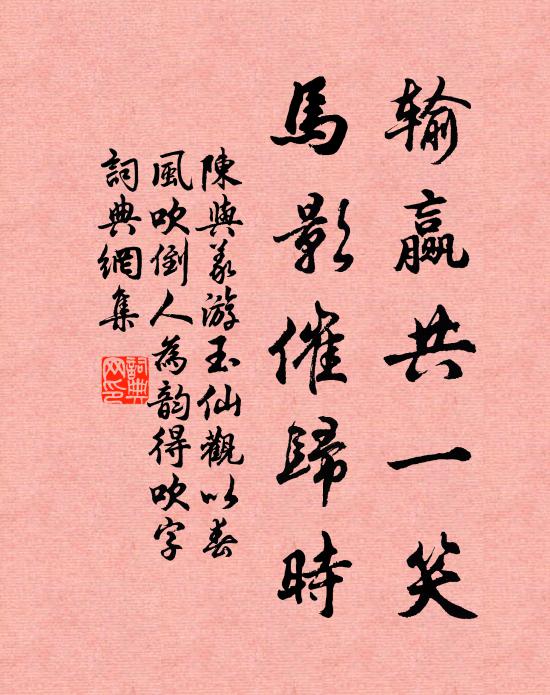 输赢共一笑
馬影催歸時
陳與義游玉仙觀以春
風吹倒人為韵得吹字
詞典網集
詞典
网印